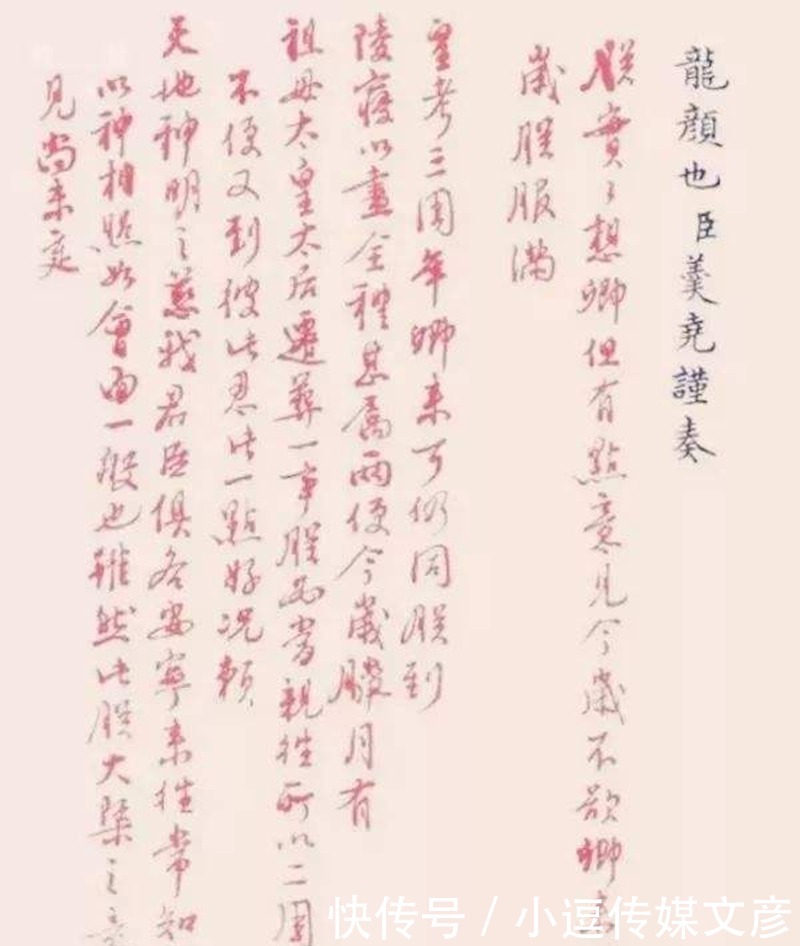 龍顏也臣羹堯謹奏
朕實々想卿但有點意見今歲不欲卿
歲朕服滿
皇考三周年卿來可仍同朕到
陵寢以盡全禮甚屬兩便今歲臘月有
祖母太皇太后遷葬一事朕必當親往所以二周
不便又到彼此忍此一點好況賴
天地神明之慈我君臣俱各安寧來往常知
以神相照如會面一般也雖然此朕大槩之意
見尚未定
快传号 / 小逗传媒文彦